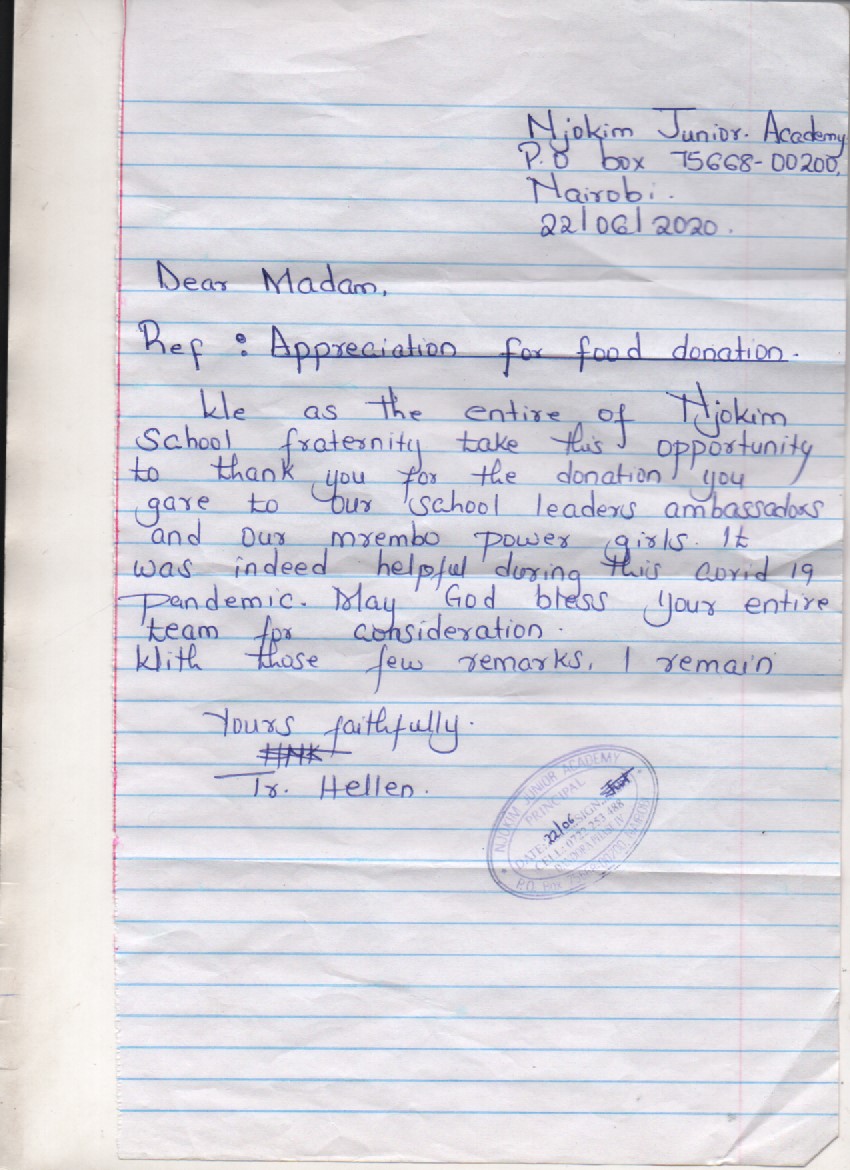 Njokim Junior. Academy
P.O box 75668-00200,
Nairobi.
22/06/2020.
Dear Madam,
Ref : Appreciation for food donation.
We as the entire of Njokim
School fraternity take this opportunity
to thank you for the donation you
gave to our school leaders ambassadors
and our mrembo power girls. It
was indeed helpful during this covid 19
pandemic. May God bless your entire
team for consideration.
With those few remarks, I remain
Yours faithfully.
Tr. Hellen.
NJOKIM JUNIOR ACADEMY
PRINCIPAL
DATE: 22/06 SIGN:
CELL: 0722 253 488
P.O. Box 75668-00200, NAIROBI